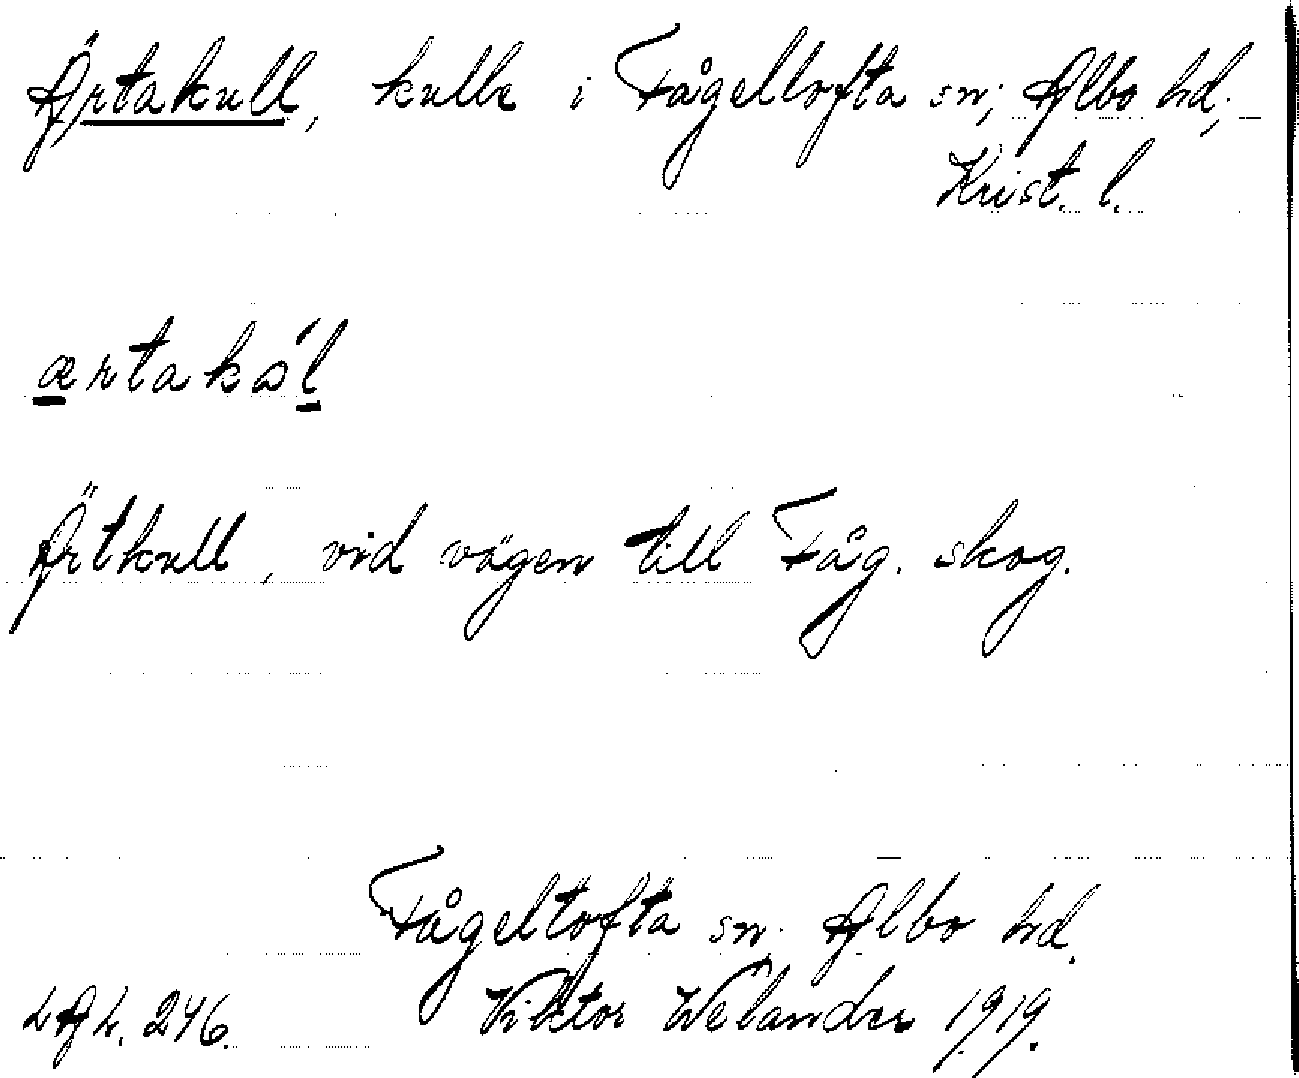 Ärtakull, kulle i Fågeltofta sn; Albo hd;
Krist. l.
ærtakól
Ärtkull, vid vägen till Fåg. skog.
Fågeltofta sn. Albo hd.
LAL. 246. Viktor Welander 1919.